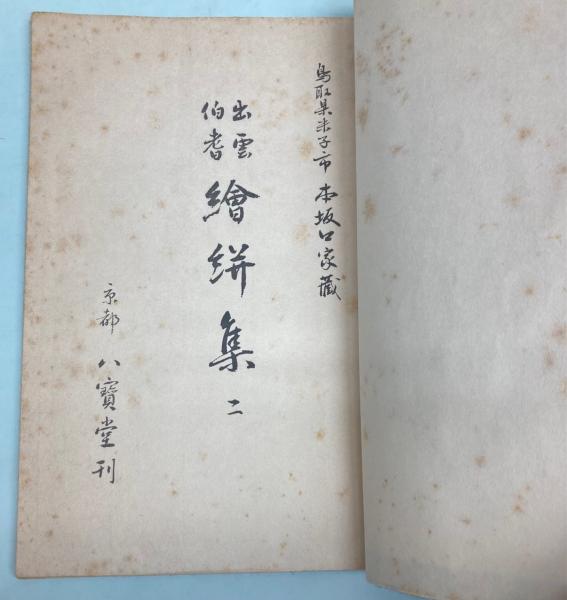 鳥取県米子市 本坂口家蔵
出雲
伯耆
繪絣集 二
京都 八寶堂刊